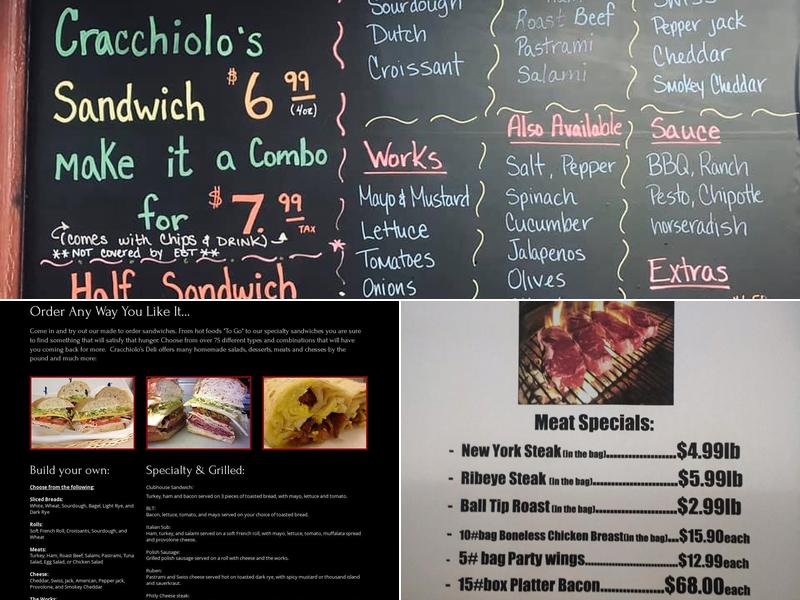 Cracchiolo's
Sandwich $6.99
(4oz)
make it a Combo
for $7.99
TAX
(comes with Chips & DRINK)
**NOT covered by EBT**
Half Sandwich
Sourdough
Dutch
Croissant
Works
Mayo & Mustard
Lettuce
Tomatoes
Onions
Roast Beef
Pastrami
Salami
Also Available
Salt, Pepper
Spinach
Cucumber
Jalapenos
Olives
Swiss
Pepper jack
Cheddar
Smokey Cheddar
Sauce
BBQ, Ranch
Pesto, Chipotle
horseradish
Extras
Order Any Way You Like It...
Come in and try out our made to order sandwiches. From hot foods "To Go" to our specialty sandwiches you are sure
to find something that will satisfy that hunger. Choose from over 75 different types and combinations that will have
you coming back for more. Cracchiolo's Deli offers many homemade salads, desserts, meats and cheeses by the
pound and much more:
Build your own:
Choose from the following:
Sliced Breads:
White, Wheat, Sourdough, Bagel, Light Rye, and
Dark Rye
Rolls:
Soft French Roll, Croissants, Sourdough, and
Wheat
Meats:
Turkey, Ham, Roast Beef, Salami, Pastrami, Tuna
Salad, Egg Salad, or Chicken Salad
Cheese:
Cheddar, Swiss, Jack, American, Pepper jack,
Provolone, and Smokey Cheddar
The Works:
Specialty & Grilled:
Clubhouse Sandwich:
Turkey, ham and bacon served on 3 pieces of toasted bread, with mayo, lettuce and tomato.
BLT:
Bacon, lettuce, tomato, and mayo served on your choice of toasted bread.
Italian Sub:
Ham, turkey, and salami served on a soft French roll, with mayo, lettuce, tomato, muffalata spread
and provolone cheese.
Polish Sausage:
Grilled polish sausage served on a roll with cheese and the works.
Ruben:
Pastrami and Swiss cheese served hot on toasted dark rye, with spicy mustard or thousand island
and sauerkraut.
Philly Cheese steak:
Meat Specials:
- New York Steak (in the bag)....................$4.99lb
- Ribeye Steak (in the bag)......................$5.99lb
- Ball Tip Roast (in the bag)....................$2.99lb
- 10#bag Boneless Chicken Breast(in the bag)....$15.90each
- 5# bag Party wings....................$12.99each
- 15#box Platter Bacon....................$68.00each